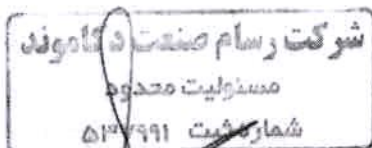 شرکت رسام صنعت دکاموند
مسئولیت محدود
شماره ثبت ۵۳۷۹۹۱